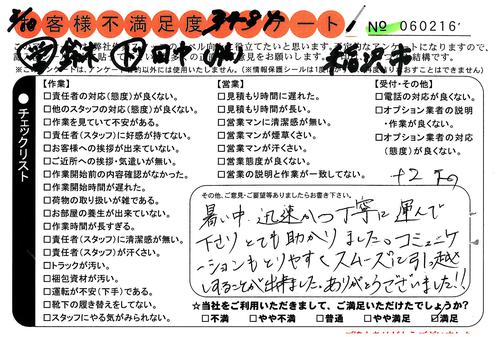 お客様不満足度アンケート
№ 060216
稲沢市
チェックリスト
【作業】
□責任者の対応(態度)が良くない。
□他のスタッフの対応(態度)が良くない。
□作業を見ていて不安がある。
□責任者(スタッフ)に好感が持てない。
□お客様への挨拶が出来ていない。
□ご近所への挨拶・気遣いが無い。
□作業開始前の内容確認がなかった。
□作業開始時間が遅れた。
□荷物の取り扱いが雑である。
□お部屋の養生が出来ていない。
□作業時間が長すぎる。
□責任者(スタッフ)に清潔感が無い。
□責任者(スタッフ)が汗くさい。
□トラックが汚い。
□梱包資材が汚い。
□運転が不安(下手)である。
□靴下の履き替えをしてない。
□スタッフにやる気がみられない。
【営業】
□見積もり時間に遅れた。
□見積もり時間が長い。
□営業マンに清潔感が無い。
□営業マンが煙草くさい。
□営業マンが汗くさい。
□営業態度が良くない。
□営業の説明と作業が一致してない。
【受付・その他】
□電話の対応が良くない。
□オプション業者の説明
・作業が良くない。
□オプション業者の対応
(態度)が良くない。
その他、ご意見・ご要望等ありましたらお書き下さい。
暑い中、迅速かつ丁寧に運んで
下さりとても助かりました。コミュニケ
ーションもとりやすくスムーズに引っ越し
しすることが出来ました。ありがとうございました!!
☆当社をご利用いただきまして、ご満足いただけたでしょうか?
□不満 □やや不満 □普通 □やや満足 ☑満足